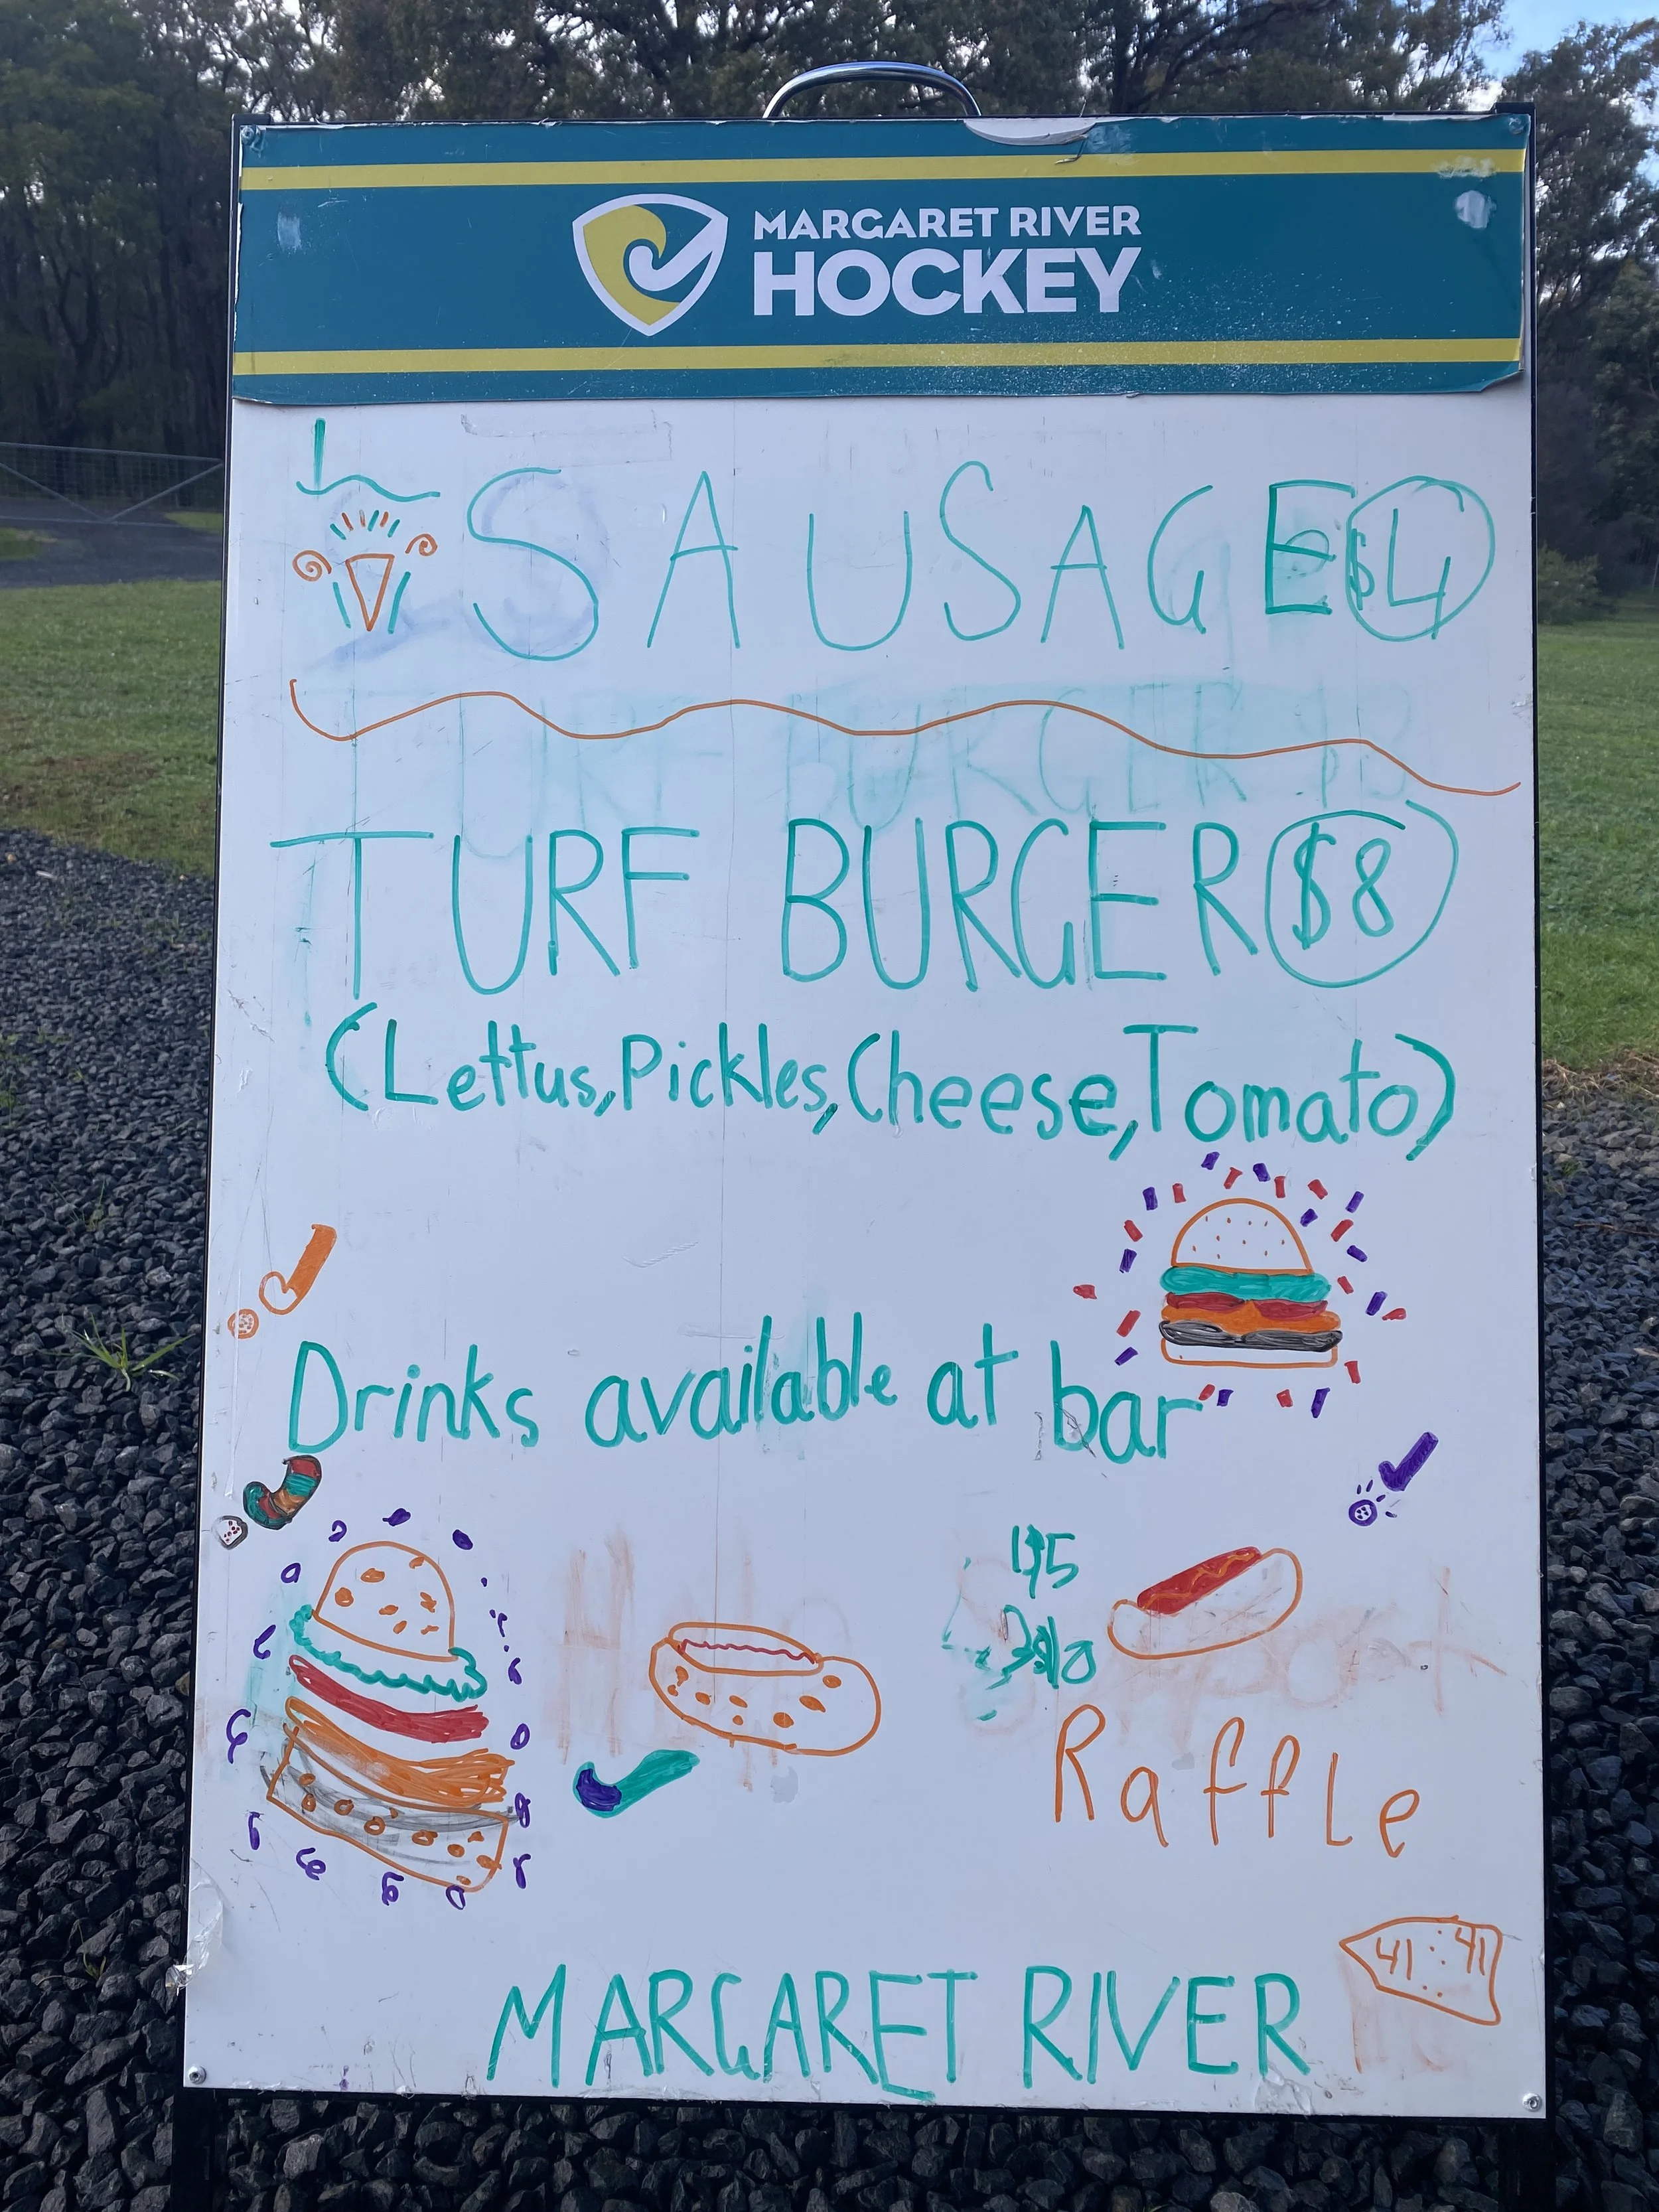 MARGARET RIVER
HOCKEY
SAUSAGE $4
TURF BURGER $8
(Lettus, Pickles, Cheese, Tomato)
Drinks available at bar
Raffle
41 : 41
MARGARET RIVER